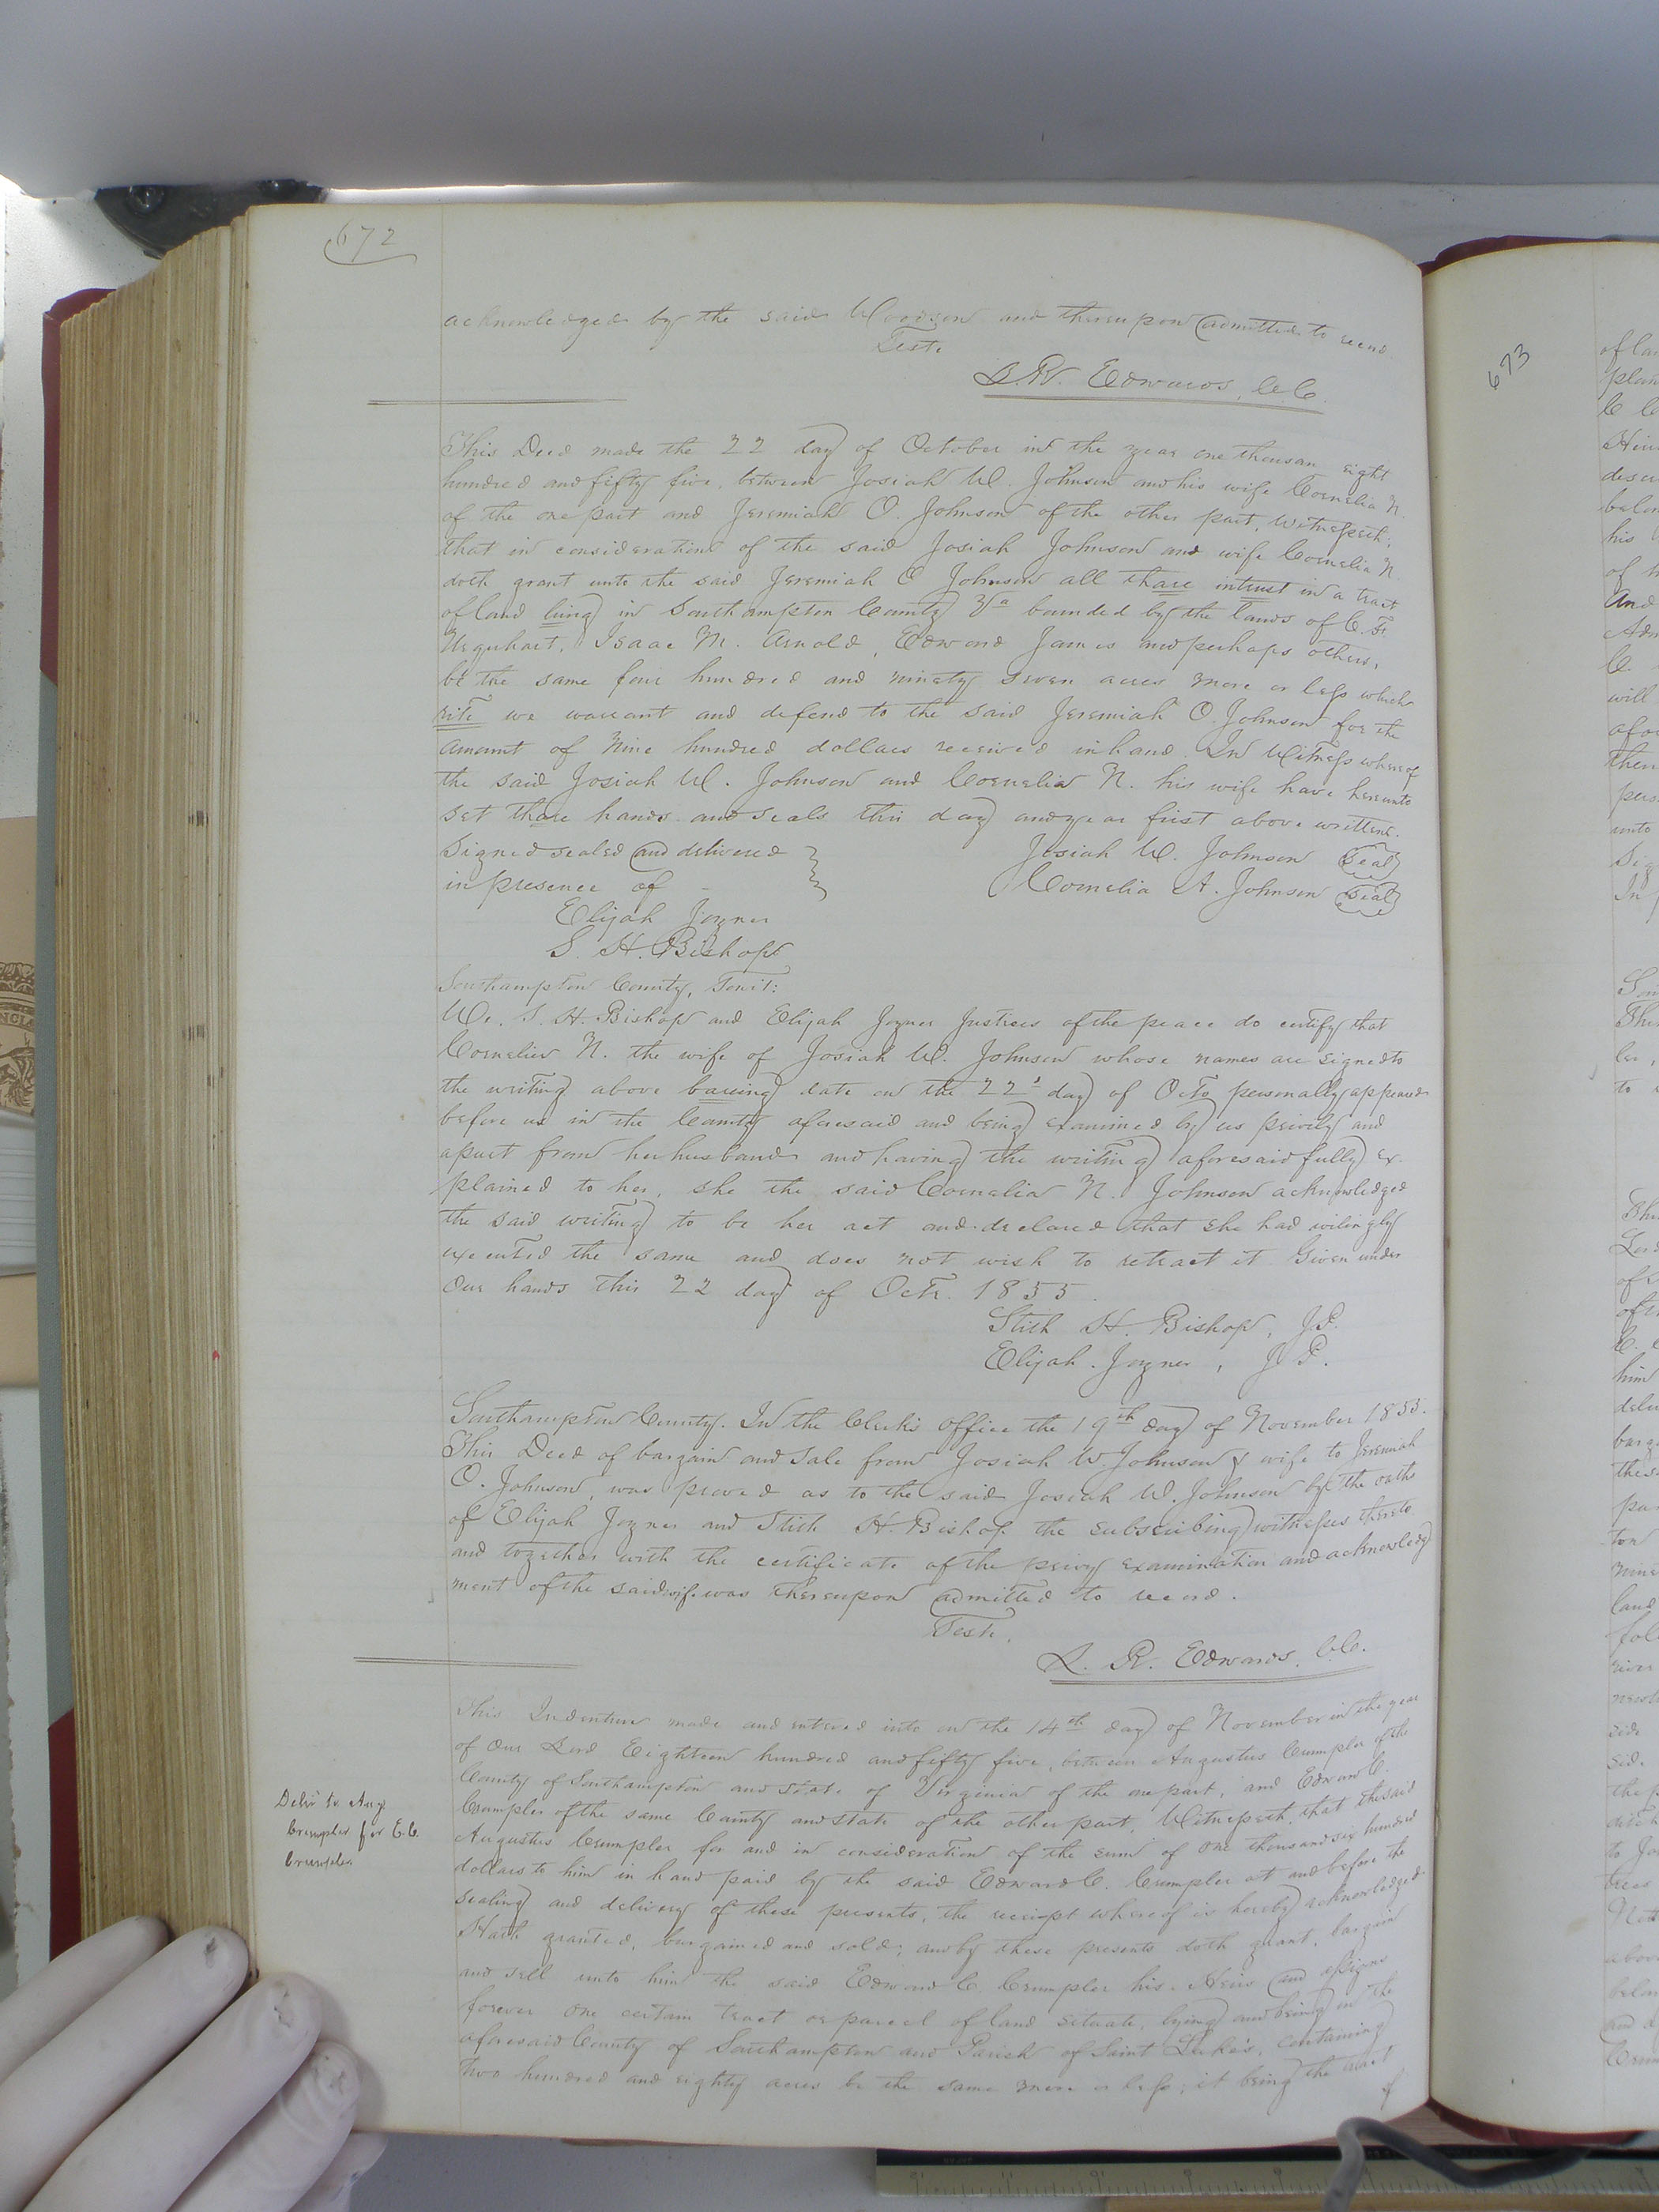 672
acknowledged by the said Woodson and thereupon admitted to record
Teste
L. R. Edwards, C.C.
This Deed made the 22 day of October in the year one thousan eight
hundred and fifty five, between Josiah W. Johnson and his wife Cornelia N.
of the one part and Jeremiah O. Johnson of the other part, Witnesseth,
that in consideration of the said Josiah Johnson and wife Cornelia N
doth grant unto the said Jeremiah O Johnson all thare intrust in a tract
of land liing in Southampton County Va bounded by the lands of C. F.
Urquhart, Isaac M. Arnold, Edword James and perhaps others,
be the same four hundred and ninety seven acres more or less which
rite we warrant and defend to the said Jeremiah O. Johnson for the
amount of Nine hundred dollars received in hand. In Witness whereof
the said Josiah W. Johnson and Cornelia N. his wife have hereunto
set thare hands and seals this day and year first above written.
Signed sealed and delivered Josiah W. Johnson Seal
in presence of Cornelia A. Johnson Seal
Elijah Joyner
S. H. Bishop
Southampton County, Towit:
We, S. H. Bishop and Elijah Joyner Justices of the peace do certify that
Cornelia N. the wife of Josiah W. Johnson whose names are signed to
the writing above bareing date on the 22d day of Octo personally appeared
before us in the County aforesaid and being examined by us privily and
apart from her husband and having the writing aforesaid fully ex-
plained to her, she the said Cornelia N. Johnson acknowledged
the said writing to be her act and declared that she had wilingly
executed the same and does not wish to retract it Given under
Our hands this 22 day of Octr. 1855.
Stith H. Bishop, J.P.
Elijah Joyner, J.P.
Southampton County. In the Clerk's Office the 19th day of November 1855.
This Deed of bargain and sale from Josiah W. Johnson & wife to Jeremiah
O. Johnson, was proved as to the said Josiah W. Johnson by the oaths
of Elijah Joyner and Stith H. Bishop the subscribing witnesses thereto
and together with the certificate of the privy examination and acknowledg
ment of the said wife was thereupon admitted to record.
Teste.
L. R. Edwards, C.C.
This Indenture made and entered into on the 14th day of November in the year
of Our Lord Eighteen hundred and fifty five, between Augustus Crumpler of the
County of Southampton and State of Virginia of the one part, and Edward C.
Crumpler of the same County and State of the other part, Witnesseth, that the said
Augustus Crumpler for and in consideration of the sum of One thousand six hundred
dollars to him in hand paid by the said Edward C. Crumpler at and before the
sealing and delivery of these presents, the receipt whereof is hereby acknowledged
Hath granted, bargained and sold, and by these presents doth grant, bargain
and sell unto him the said Edward C. Crumpler his Heirs and assigns
forever One certain tract or parcel of land situate, lying and being in the
aforesaid County of Southampton and Parish of Saint Luke's, containing
two hundred and eighty acres be the same more or less; it being the tract
of
Deliv to Aug
Crumpler for E.C.
Crumpler
673